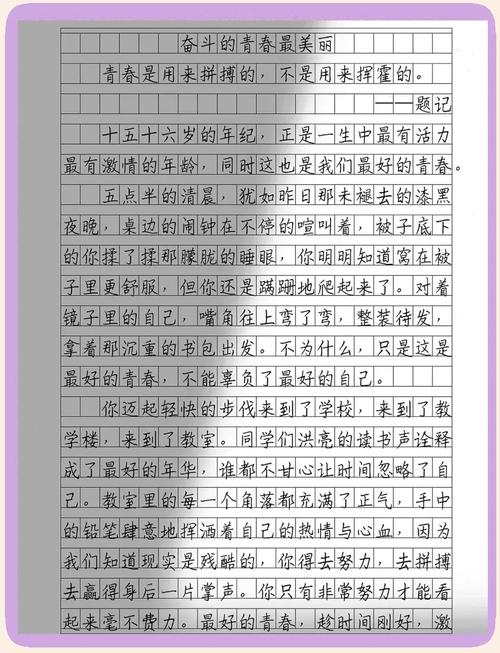 奋斗的青春最美丽
青春是用来拼搏的,不是用来挥霍的。
——题记
十五十六岁的年纪,正是一生中最有活力
最有激情的年龄,同时这也是我们最好的青春。
五点半的清晨,犹如昨日那未褪去的漆黑
夜晚,桌边的闹钟在不停的喧叫着,被子底下
的你揉了揉那朦胧的睡眼,你明明知道窝在被
子里更舒服,但你还是蹒跚地爬起来了。对着
镜子里的自己,嘴角往上弯了弯,整装待发,
拿着那沉重的书包出发。不为什么,只是这是
最好的青春,不能辜负了最好的自己。
你迈起轻快的步伐来到了学校,来到了教
学楼,来到了教室。同学们洪亮的读书声诠释
成了最好的年华,谁都不甘心让时间忽略了自
己。教室里的每一个角落都充满了正气,手中
的铅笔肆意地挥洒着自己的热情与心血,因为
我们知道现实是残酷的,你得去努力,去拼搏
去赢得身后一片掌声。你只有非常努力才能看
起来毫不费力。最好的青春,趁时间刚好,激